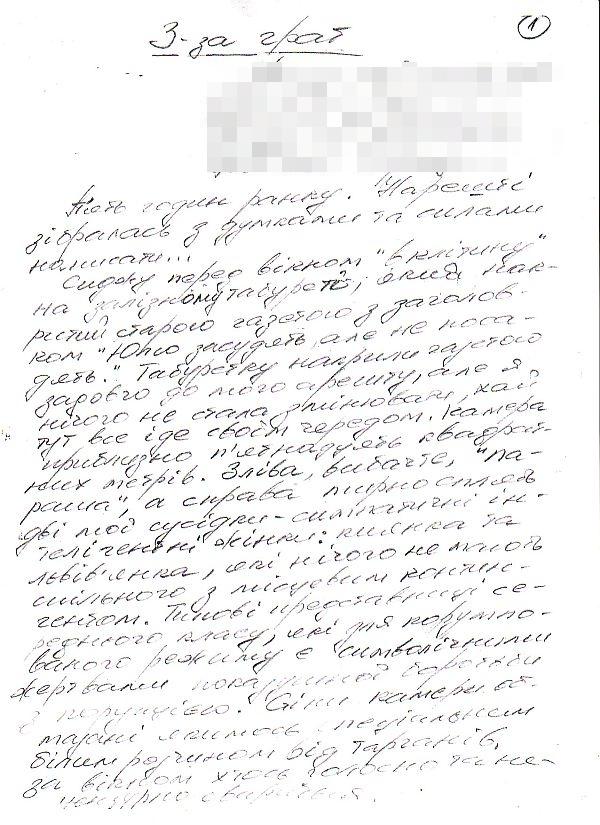 1
З-за грат
П'ять годин ранку. Нарешті
зібралась з думками та силами
написати...
Сиджу перед вікном "в клітину"
на залізному табуреті, який нак-
ритий старою газетою з заголов-
ком "Юлю засудять, але не поса-
дять." Табуретку накрили газетою
задовго до мого арешту, але я
нічого не стала змінювати, хай
тут все іде своїм чередом. Камера
приблизно п'ятнадцять квадрат-
них метрів. Зліва, вибачте, "па-
раша", а справа мирно сплять
дві мої сусідки - симпатичні ін-
телігентні жінки: киянка та
львів'янка, які нічого не мають
спільного з місцевим контин-
гентом. Типові представниці се-
реднього класу, які для корумпо-
ваного режиму є символічними
жертвами показушної боротьби
з корупцією. Стіни камери об-
мазані якимось подільським
білим розчином від тарганів,
за вікном хтось голосно та не-
цензурно свариться.